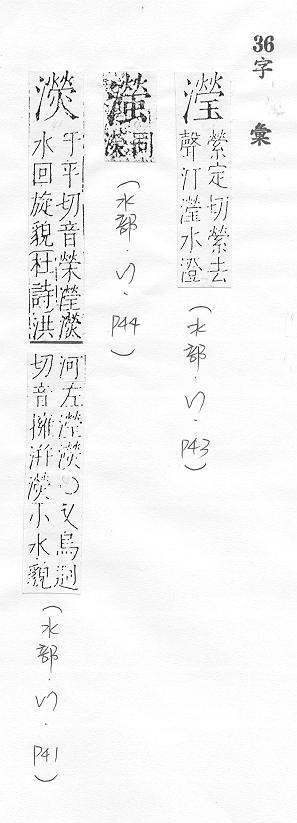 36字彙
瀅
縈定切縈去
聲汀瀅水澄
(水部·巳·P43)
同
(水部·巳·P44)
濙
于平切音榮瀅濙
水回旋貌杜詩洪
河左瀅濙〇又烏迥
切音擁汫濙小水貌
(水部·巳·P41)